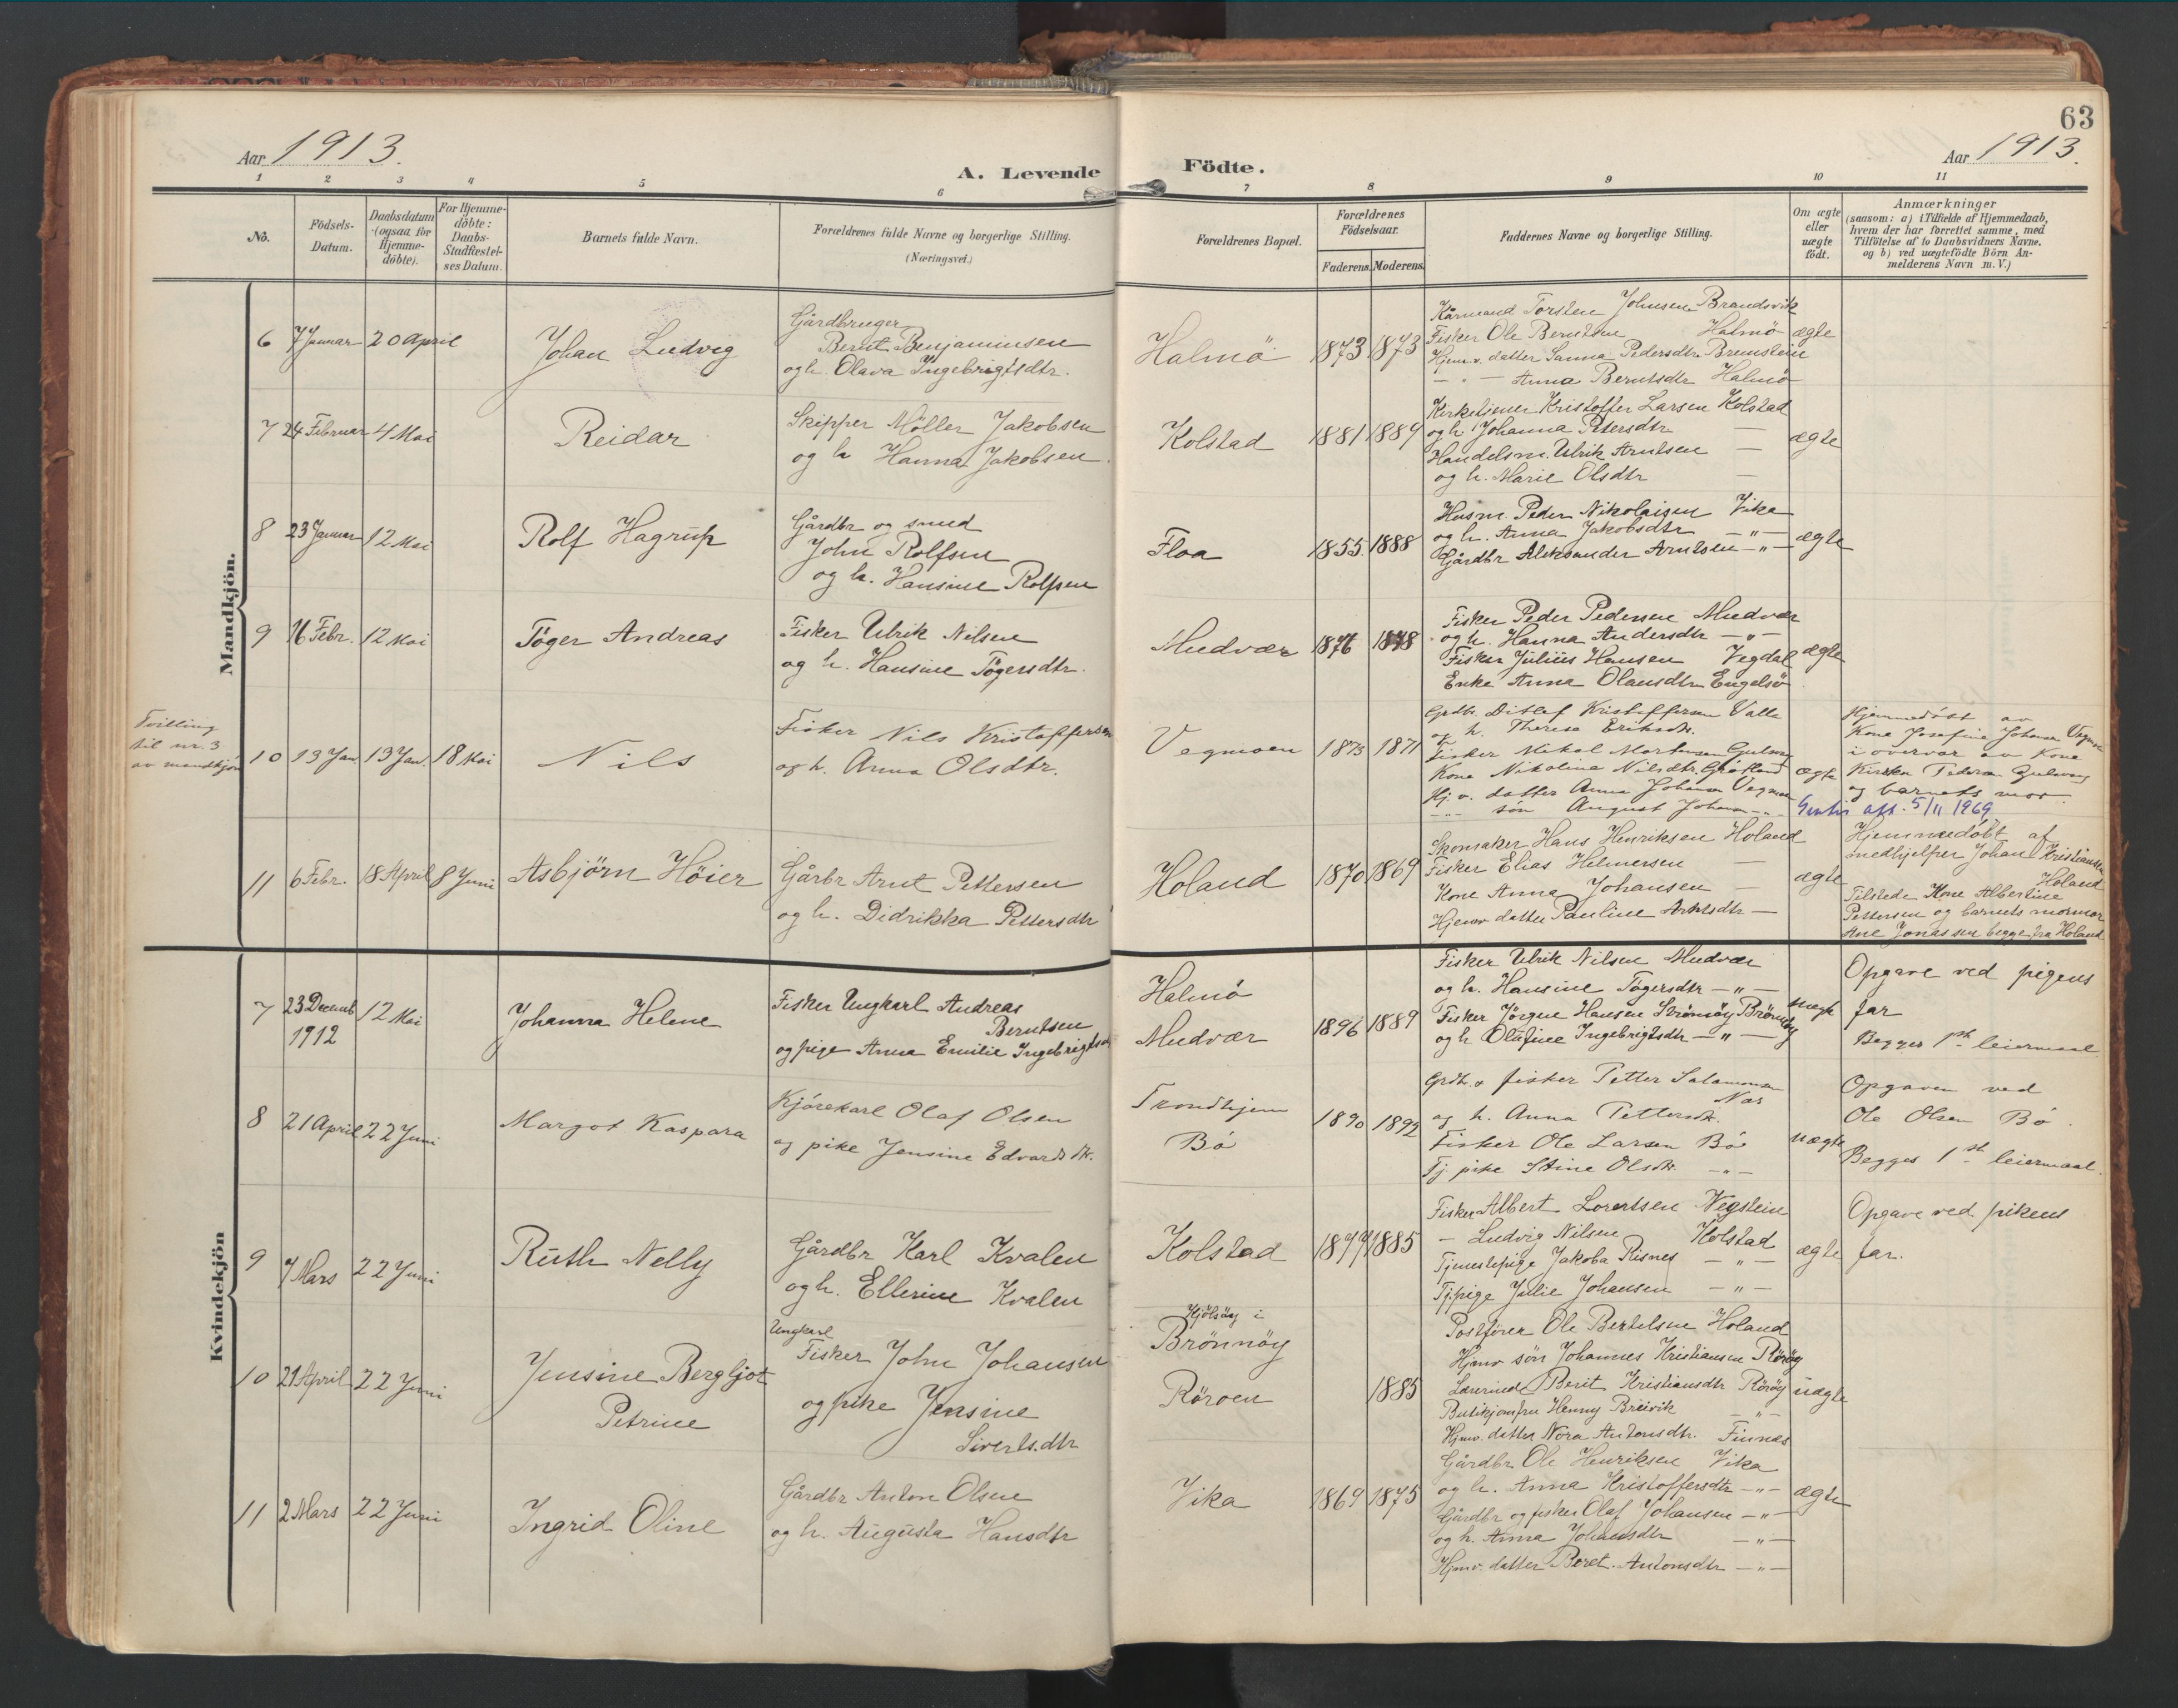 63
Aar 1913.
A. Levende
Födte.
Aar 1913.
1 2 3 4 5 6 7 8 9 10 11
No.
Födsels-
Datum.
Daabsdatum
(ogsaa for
Hjemme-
döbte).
For Hjemme-
döbte:
Daabs-
Stadfæstel-
ses Datum.
Barnets fulde Navn.
Forældrenes fulde Navne og borgerlige Stilling.
(Næringsvei.)
Forældrenes Bopæl.
Forældrenes
Födselsaar.
Faderens. Moderens.
Faddernes Navne og borgerlige Stilling.
Om ægte
eller
uægte
födt.
Anmærkninger
(saasom: a) i Tilfælde af Hjemmedaab,
hvem der har forrettet samme, med
Tilföielse af to Daabsvidners Navne.
og b) ved uægtefödte Börn An-
melderens Navn m. V.)
Mandkjön.
6 7 Januar 20 April
Johan Ludvig
Gårdbruger
Bernt Benjaminsen
og h. Olava Ingebrigtsdtr.
Halmö 1873 1873
Kårmand Torsten Johnsen Brandsvik
Fisker Ole Berntsen Halmö
Hjemv. datter Sanna Pedersdtr Bremstein
— " — Anna Berntsdtr Halmö
ægte
7 24 Februar 4 Mai
Reidar
Skipper Möller Jakobsen
og h Hanna Jakobsen.
Kolstad 1881 1889
Kirketjener Kristoffer Larsen Kolstad
og h. Johanna Petersdtr —
Handelsm. Ulrik Arntsen —
og h. Marie Olsdtr —
ægte
8 23 Januar 12 Mai
Rolf Hagrup
Gårdbr og smed
John Rolfsen
og h. Hansine Rolfsen
Floa 1855. 1888
Husm. Peder Nikolaisen Vika
og h. Anna Jakobsdtr — " —
Gårdbr Aleksander Arntsen — " —
ægte
9 16 Febr. 12 Mai
Töger Andreas
Fisker Ulrik Nilsen
og h. Hansine Tögersdtr.
Mudvær 1876 1878
Fisker Peder Pedersen Mudvær
og h. Hanna Andersdtr — " —
Fisker Julius Hansen Vegdal
Enke Anna Olausdtr Engelsö
ægte
Tvilling
til nr. 3
av mandkjön
10 13 Jan. 13 Jan. 18 Mai
Nils
Fisker Nils Kristoffersen
og h. Anna Olsdtr.
Vegmoen 1873 1871
Grdbr. Ditlef Kristoffersen Valla
og h. Therese Eriksdtr.
Fisker Mikal Mortensen
Kone Nikoline Nilsdtr.
Hj. v. datter Anna Johansen Vegmoen
— " — sön August Johansen — " —
ægte
Hjemmedöbt av
Kone Josefine Johansen Vegmoen
i overvær av Kone
Kirsten Pedersen
og barnets mor.
att. 5/11 1969
11 6 Febr. 18 April 8 Juni
Asbjörn Höier
Gårbr Arnt Pettersen
og h. Didrikka Pettersdtr
Holand 1870 1869
Skomaker Hans Henriksen Holand
Fisker Elias Helmersen —
Kone Anna Johansen —
Hjemv datter Pauline Arntsdtr —
ægte
Hjemmedöbt af
medhjelper Johan Kristiansen
Holand
Tilstede Kone Albertine
Pettersen og barnets mormor
Ane Jonassen begge fra Holand
Kvindekjön
7 23 Decemb 12 Mai
1912
Johanna Helene
Fisker Ungkarl Andreas
Berntsen
og pige Anna Emilie Ingebrigtsdtr
Halmö
Mudvær 1896 1889
Fisker Ulrik Nilsen Mudvær
og h. Hansine Tögersdtr — " —
Fisker Jörgen Hansen Strömöy Brönnöy
og h Olufine Ingebrigtsdtr — " —
uægte
Opgave ved pigens
far
Begges 1ste leiermaal
8 21 April 22 Juni
Margot Kaspara
Kjörekarl Olaf Olsen
og pike Jensine Edvardsdtr.
Trondhjem
Bö 1890 1892
Grdbr. & fisker Petter Salamonsen
Nes
og h. Anna Pettersdtr.
Fisker Ole Larsen Bö
Tj. pike Stine Olsdtr. — " —
uægte
Opgaven ved
Ole Olsen Bö.
Begges 1ste leiermaal.
9 7 Mars 22 Juni
Ruth Nelly
Gårdbr Karl Kvalen
og h. Ellerine Kvalen
Kolstad 1877 1885
Fisker Albert Lorentsen Vegstein
— Ludvig Nilsen Kolstad
Tjenestepige Jakoba Risnes — " —
Tj.pige Julie Johansen — " —
ægte
Opgave ved pikens
far.
10 21 April 22 Juni
Jensine Bergljot
Petrine
Ungkarl
Fisker John Johansen
og pike Jensine
Sivertsdtr
Kjölsöy i
Brönnöy
Röroen 1885
Postförer Ole Bertelsen Holand
Hjmv sön Johannes Kristiansen Röröy
Lærerinde Berit Kristiansdtr Röröy
Butikjomfru Henny Breivik — " —
Hjmv. datter Nora Antonsdtr. Finnes
uægte
11 2 Mars 22 Juni
Ingrid Oline
Gårdbr Anton Olsen
og h. Augusta Hansdtr
Vika 1869 1875
Gårdbr Ole Henriksen Vika
og h. Anna Kristoffersdtr — " —
Gårdbr og fisker Olaf Johansen — " —
og h. Anna Johansdtr — " —
Hjmv. datter Beret Antonsdtr — " —
ægte